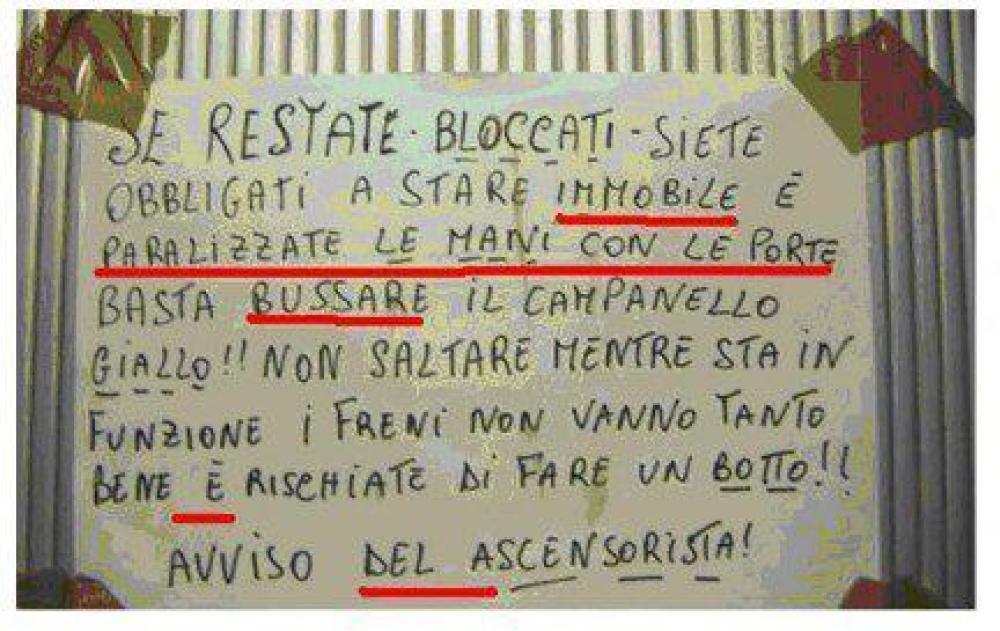 SE RESTATE · BLOCCATI · SIETE
OBBLIGATI A STARE IMMOBILE È
PARALIZZATE LE MANI CON LE PORTE
BASTA BUSSARE IL CAMPANELLO
GIALLO!! NON SALTARE MENTRE STA IN
FUNZIONE I FRENI NON VANNO TANTO
BENE È RISCHIATE DI FARE UN BOTTO!!
AVVISO DEL ASCENSORISTA!